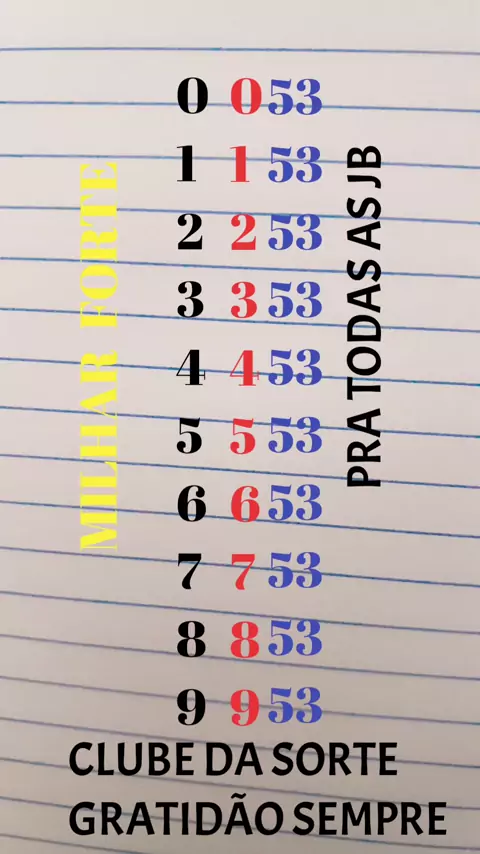 MILHAR FORTE
0 053
1 153
2 253
3 353
4 453
5 553
6 653
7 753
8 853
9 953
PRA TODAS AS JB
CLUBE DA SORTE
GRATIDÃO SEMPRE